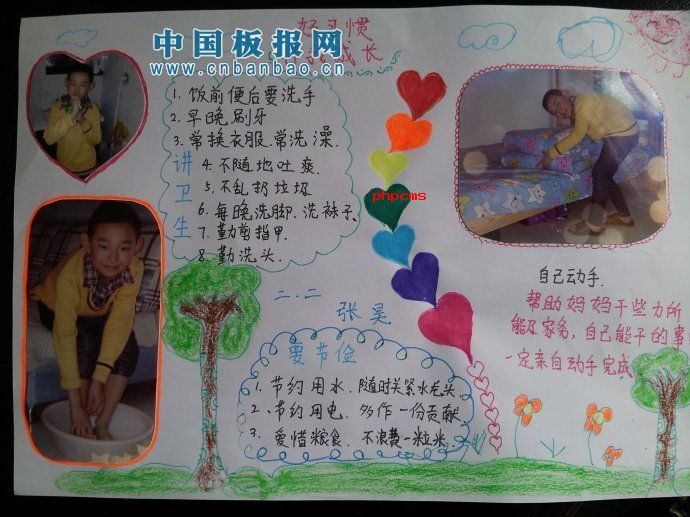 好习惯
成长
中国板报网
www.cnbanbao.cn
讲卫生
1. 饭前便后要洗手
2. 早晚刷牙
3. 常换衣服.常洗澡.
4. 不随地吐痰
5. 不乱扔垃圾
6. 每晚洗脚.洗袜子.
7. 勤剪指甲.
8. 勤洗头.
phpcms
二.二
张昊
要节俭
1. 节约用水.随时关紧水龙头.
2. 节约用电.多作一份贡献
3. 爱惜粮食.不浪费一粒米.
自己动手.
帮助妈妈干些力所
能及家务,自己能干的事
一定亲自动手完成.